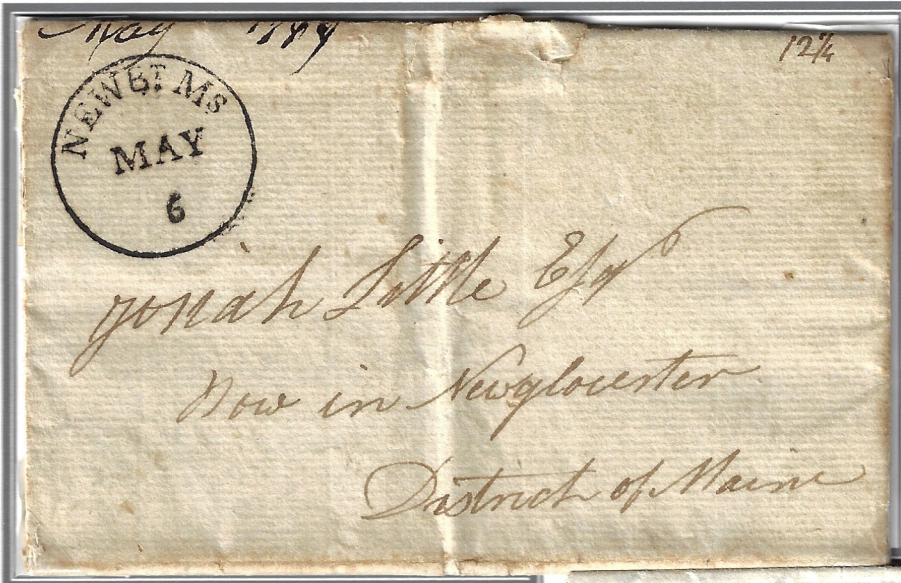 May
12½
NEWBT MS
MAY
6
Josiah Little Esqr
Now in Newglocester
District of Maine